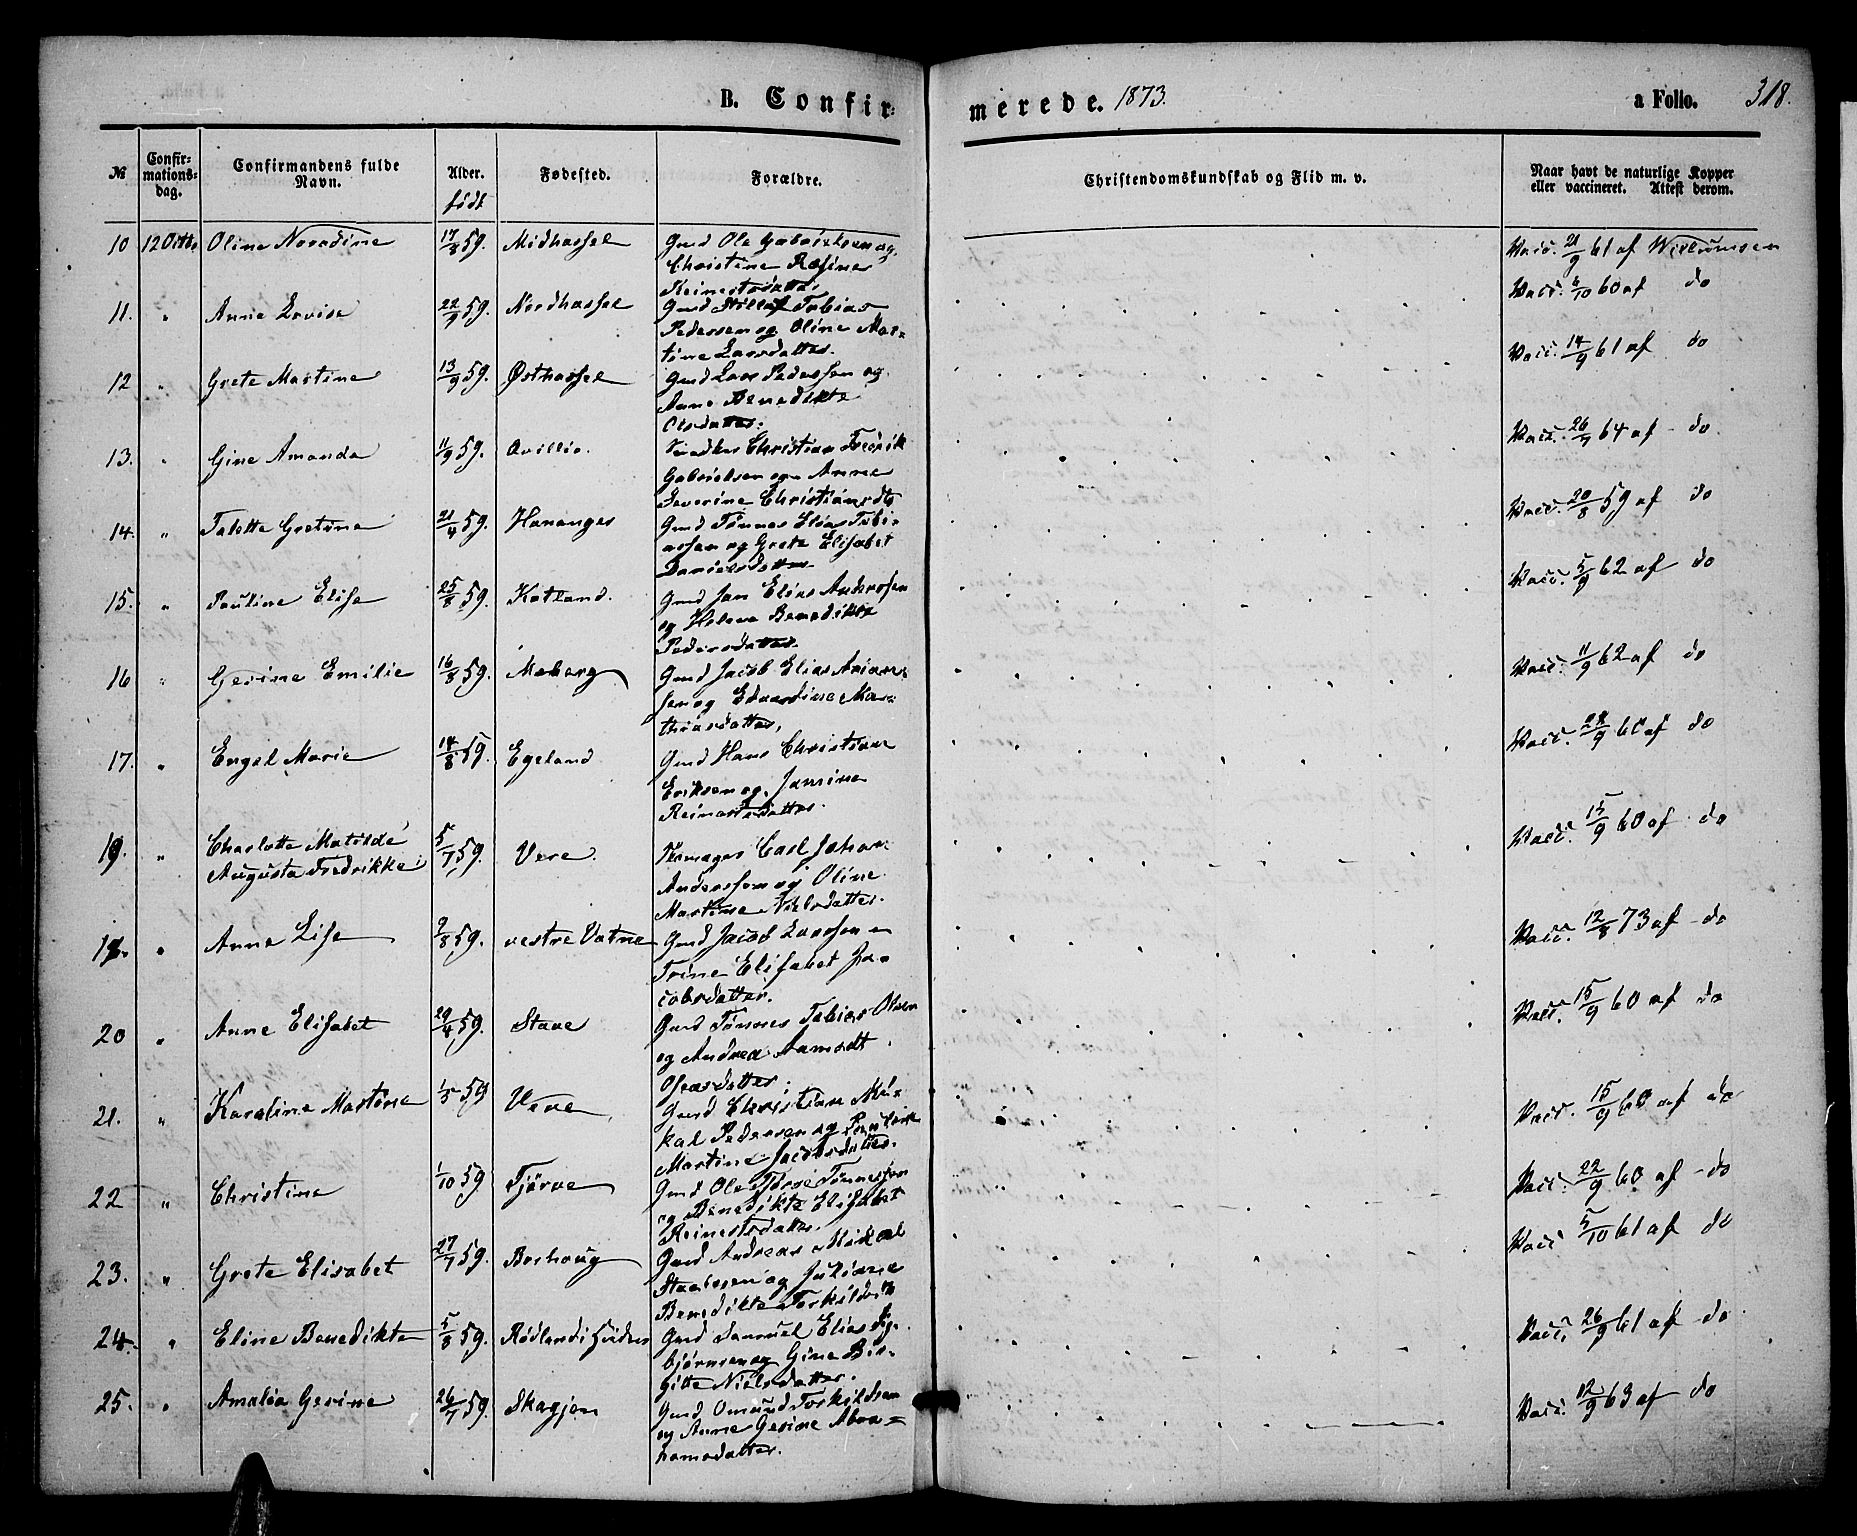 B. Confir-
merede. 1873.
a Folio. 318.
№
Confir-
mations-
dag.
Confirmandens fulde
Navn.
Alder.
født
Fødested.
Forældre.
Christendomskundskab og Flid m. v.
Naar havt de naturlige Kopper
eller vaccineret. Attest derom.
10 12 Octb. Oline Noradine 17/8 59. Midhassel Gmd Ole Gabrielsen og
Christine Rasine
Reinertsdatter
Vacc. 21/9 61 af Willumsen
11. " Anne Lovise 22/9 59. Nordhassel Gmd Tobias
Pedersen og Oline Mar-
tine Larsdatter.
Vacc. 6/10 60 af do
12 " Grete Martine 13/9 59. Østhassel Gmd Lars Pedersen og
Anne Benedikte
Olsdatter.
Vacc. 14/9 61 af do
13. " Gine Amanda 11/9 59. Christian Fredrik
Gabrielsen og Anne
Severine Christiansdtr
Vacc. 26/7 64 af do.
14. " Talette Gretine 21/4 59. Hananger Gmd Tønnes Elias Tobi-
assen og Grete Elisabet
Danielsdatter
Vacc. 20/8 59 af do
15. " Pauline Elise 25/8 59. Kotland. Gmd Jan Elias Andersen
og Helene Benedikte
Pedersdatter.
Vacc. 5/9 62 af do
16 " Gesine Emilie 16/8 59. Meberg Gmd Jacob Elias
sen og Edvardine Ma-
thiasdatter,
Vacc. 11/9 62 af do
17. " Engel Marie 14/8 59. Egeland Gmd Hans Christian
Eriksen og Jansine
Reinertsdatter.
Vacc. 28/9 61 af do
19. " Charlotte Matilde
Augusta Fredrikke 5/7 59. Vere. Carl Johan
Anderssen og Oline
Martine Nielsdatter.
Vacc. 15/9 60 af do
18. " Anne Lise 9/8 59. vestre Vatne Gmd Jacob Larssen
Trine Elisabet Ja-
cobsdatter.
Vacc. 12/8 73 af do
20 " Anne Elisabet 29/4 59. Stave Gmd Tønnes Tobias Olsen
og Andrea Aamodt
Oseasdatter.
Vacc. 15/9 60 af do
21. " Karoline Martine 1/5 59 Vere Gmd Christian Mi-
kal Pedersen og Pauline
Martine Jacobsdatter.
Vacc. 15/9 60 af do
22 " Christine 1/10 59 Tjørve Gmd Ole Tønnessen
og Benedikte Elisabet
Reinertsdatter.
Vacc. 22/9 60 af do
23. " Grete Elisabet 27/7 59. Borhoug Gmd Andreas Mikal
og Juliane
Benedikte Torkildsdtr
Vacc 5/10 61 af do
24. " Eline Benedikte 5/8 59. Rødland i Gmd Samuel Elias Sig-
bjørnsen og Gine Bir-
gitte Nielsdatter.
Vacc. 26/9 61 af do
25. " Amalia Gesine 26/7 59. Skagjen Gmd Omund Torkildsen
og Anne Gesine Abra-
hamsdatter.
Vacc. 12/9 63 af do